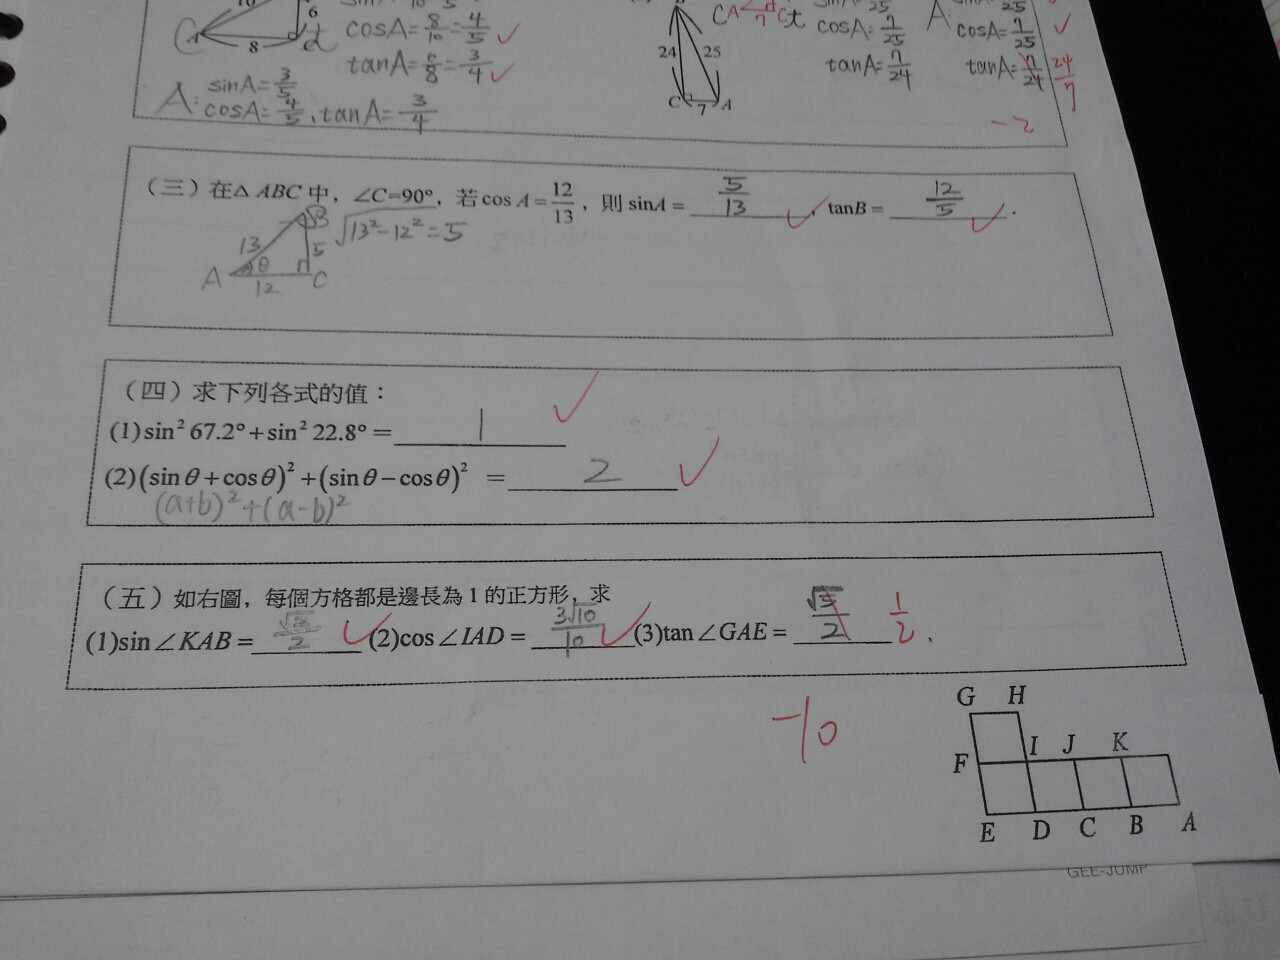 10
6
8
C
cosA=8/10=4/5 ✓
tanA=6/8=3/4 ✓
A: sinA=3/5
cosA=4/5、tanA=3/4
24
25
C
7
A
cosA=7/25
tanA=7/24
A:
cosA=7/25 ✓
tanA=7/24 24/7
-2
(三)在△ABC中,∠C=90°,若cos A=12/13,則sinA=5/13 ✓,tanB=12/5 ✓.
√13²-12²=5
13
B
5
θ
A
12
C
(四)求下列各式的值:
(1)sin² 67.2°+sin² 22.8°=1 ✓
(2)(sin θ+cos θ)²+(sin θ-cos θ)² =2 ✓
(a+b)²+(a-b)²
(五)如右圖,每個方格都是邊長為1的正方形,求
(1)sin∠KAB=√2/2 ✓(2)cos∠IAD=3√10/10 ✓(3)tan∠GAE=√5/2 1/2.
-10
G H
F I J K
E D C B A
GEE-JUMP